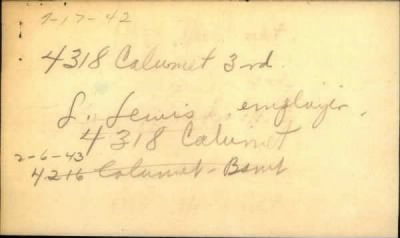 9-17-42
4318 Calumet 3rd.
L. Lewis, employer,
4318 Calumet
2-6-43
4216 Calumet - Bsmt